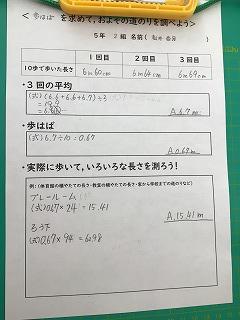 < 歩はば を求めて,およその道のりを調べよう>
5年 2組 名前(
1回目 2回目 3回目
10歩で歩いた長さ 6m60cm 6m64cm 6m69cm
・3回の平均
(式)(6.6+6.6+6.7)÷3
=19.9
A.6.7m
・歩はば
(式)6.7÷10=0.67
A 0.67m
・実際に歩いて,いろいろな長さを測ろう!
例:(体育館の横やたての長さ・教室の横やたての長さ・家から学校までの道のりなど)
プレールーム
(式)0.67×24=15.41
A.15.41m
ろう下
(式)0.67×94=62.98